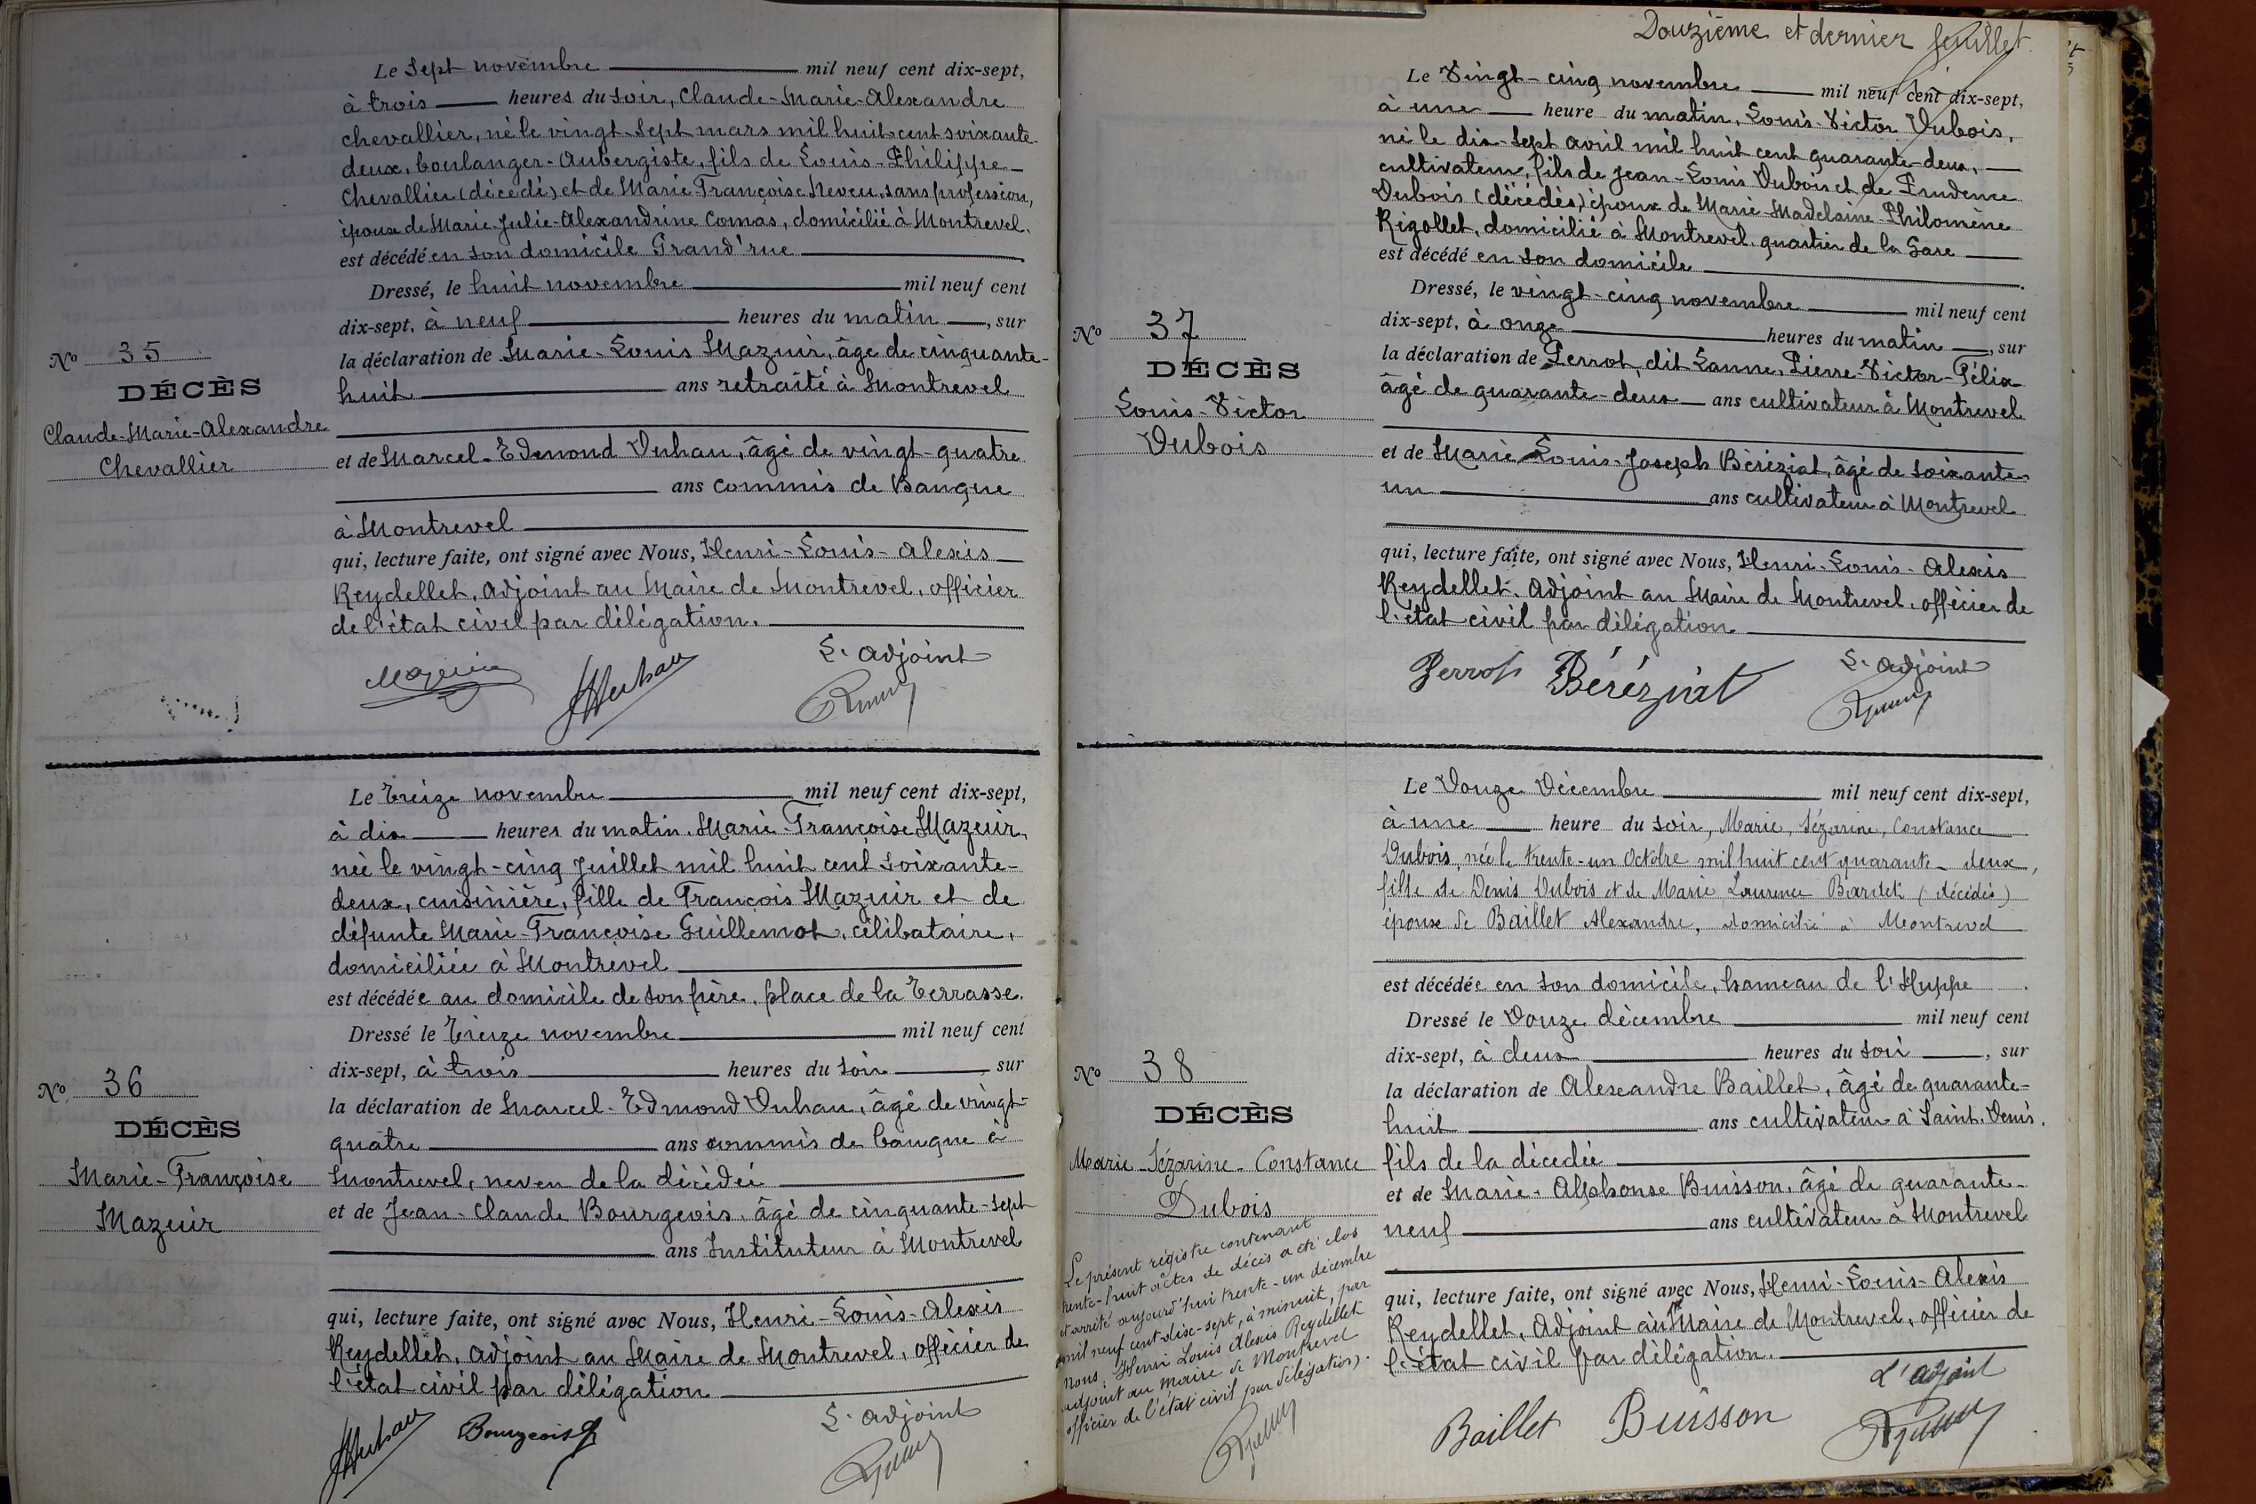 Le Sept novembre mil neuf cent dix-sept,
à trois heures du soir, Claude-Marie-Alexandre
Chevallier, né le vingt-sept mars mil huit cent soixante-
deux, boulanger-Aubergiste, fils de Louis-Philippe
Chevallier (décédé) et de Marie Françoise Neveu, sans profession,
époux de Marie-Julie-Alexandrine Comas, domicilié à Montrevel.
est décédé en son domicile Grand'rue
Dressé, le huit novembre mil neuf cent
dix-sept, à neuf heures du matin, sur
No 35
la déclaration de Marie-Louis Mazuir, âgé de cinquante-
DÉCÈS
huit ans retraité à Montrevel
Claude-Marie-Alexandre
Chevallier
et de Marcel-Edmond Duhau, âgé de vingt-quatre
ans commis de Banque
à Montrevel
qui, lecture faite, ont signé avec Nous, Henri-Louis-Alexis
Reydellet, Adjoint au Maire de Montrevel, officier
de l'état civil par délégation.
L'adjoint
Mazuir
Le Treize novembre mil neuf cent dix-sept,
à dix heures du matin, Marie-Françoise Mazuir,
née le vingt-cinq Juillet mil huit cent soixante-
deux, cuisinière, fille de François Mazuir et de
défunte Marie-Françoise Guillemot, célibataire,
domiciliée à Montrevel
est décédée au domicile de son père, place de la Terrasse.
Dressé le Treize novembre mil neuf cent
dix-sept, à trois heures du soir, sur
No 36
la déclaration de Marcel-Edmond Duhau, âgé de vingt-
DÉCÈS
quatre ans commis de banque à
Marie-Françoise
Montrevel, neveu de la décédée
Mazuir
et de Jean-Claude Bourgeois, âgé de cinquante-sept
ans Instituteur à Montrevel
qui, lecture faite, ont signé avec Nous, Henri-Louis-Alexis
Reydellet, adjoint au Maire de Montrevel, officier de
l'état civil par délégation
L'adjoint
Bourgeois
Douzième et dernier feuillet.
Le Vingt-cinq novembre mil neuf cent dix-sept,
à une heure du matin, Louis-Victor Dubois,
né le dix-sept avril mil huit cent quarante-deux,
cultivateur, fils de Jean-Louis Dubois et de Prudence
Dubois (décédés) époux de Marie-Madelaine-Philomène
Rigollet, domicilié à Montrevel, quartier de la Gare
est décédé en son domicile
Dressé, le vingt-cinq novembre mil neuf cent
No 37
dix-sept, à onze heures du matin, sur
DÉCÈS
la déclaration de Perrot, dit Lanne, Pierre-Victor-Félix
Louis-Victor
âgé de quarante-deux ans cultivateur à Montrevel
Dubois
et de Marie Louis-Joseph Béréziat, âgé de soixante
un ans cultivateur à Montrevel
qui, lecture faite, ont signé avec Nous, Henri-Louis-Alexis
Reydellet, Adjoint au Maire de Montrevel, officier de
l'état civil par délégation
L'adjoint
Perrot Béréziat
Le Douze Décembre mil neuf cent dix-sept,
à une heure du soir, Marie, Sézarine, Constance
Dubois, née le trente-un Octobre mil huit cent quarante-deux,
fille de Denis Dubois et de Marie Laurence Bardet (décédés)
épouse de Baillet Alexandre, domicilié à Montrevel
est décédée en son domicile, hameau de l'Huppe
Dressé le Douze décembre mil neuf cent
No 38
dix-sept, à deux heures du soir, sur
la déclaration de Alexandre Baillet, âgé de quarante-
DÉCÈS
huit ans cultivateur à Saint-Denis,
Marie-Sézarine-Constance
fils de la décédée
Dubois
et de Marie-Alphonse Buisson, âgé de quarante-
neuf ans cultivateur à Montrevel
qui, lecture faite, ont signé avec Nous, Henri-Louis-Alexis
Reydellet, Adjoint au Maire de Montrevel, officier de
l'état civil par délégation.
L'adjoint
Baillet Buisson
Le présent registre contenant
trente-huit actes de décès a été clos
et arrêté aujourd'hui trente-un décembre
mil neuf cent dix-sept, à minuit, par
nous, Henri Louis Alexis Reydellet
adjoint au maire de Montrevel
officier de l'état civil par délégation).